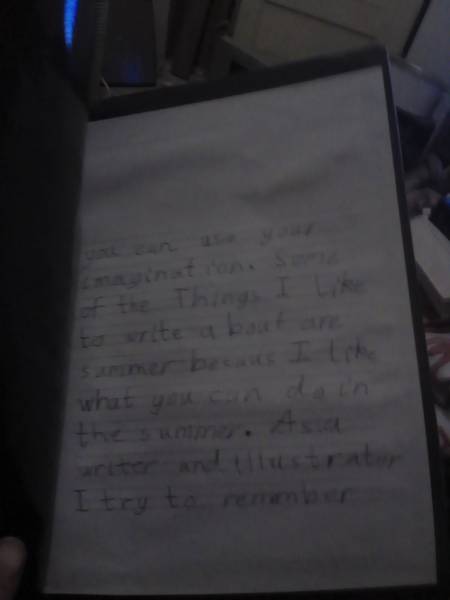 you can use your
imagination. Some
of the Things I like
to write a bout are
summer becaus I like
what you can do in
the summer. As a
writer and illustrator
I try to remmber